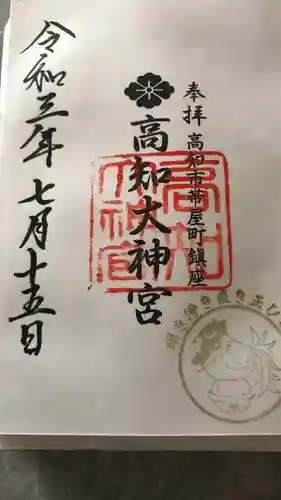 奉拝
高知市帯屋町鎮座
高知大神宮
高知大神宮
令和三年七月十五日